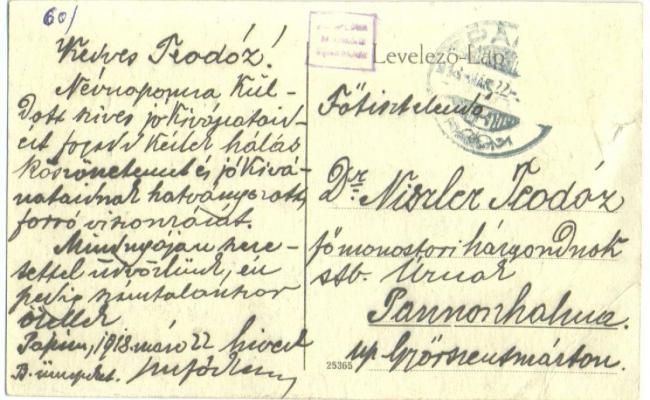 60/
Kedves Teodóz!
Névnapomra kül-
dött szives jókívánataid-
ért fogadd kérlek hálás
köszönetemet és jókívá-
nataidnak hatványozott,
forró viszonzását.
Mindnyájan szere-
tettel üdvözlünk, én
pedig számtalanszor
ölellek
Pápán, 1918. márc 22 hived
B. ünnepeket.
Levelező-Lap
PÁPA
Főtisztelendő
Dr. Niszler Teodóz
főmonostori házgondnok
stb. Úrnak
Pannonhalma.
up Győrszentmárton.
25365